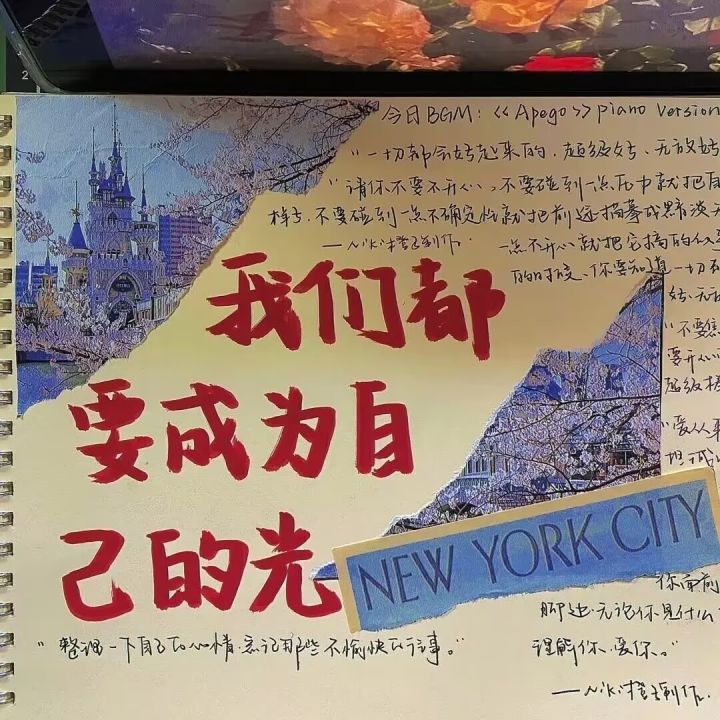 今日BGM:《Apego》piano version
"一切都会好起来的、超级好、无敌好
"请你不要不开心、不要碰到一点压力就把自
不要碰到一点不确定性就把前途描摹成黑淡
一点不开心就把它搞的
一Niki橙子制作.
你要知道一切
我们都
要成为自
己的光
"不要
要开心
超级棒
"爱
NEW YORK CITY
你面前
脚边 无论你见什么
理解你、爱你。"
"整理一下自己的心情.忘记那些不愉快的往事。"
一Niki橙子制作.